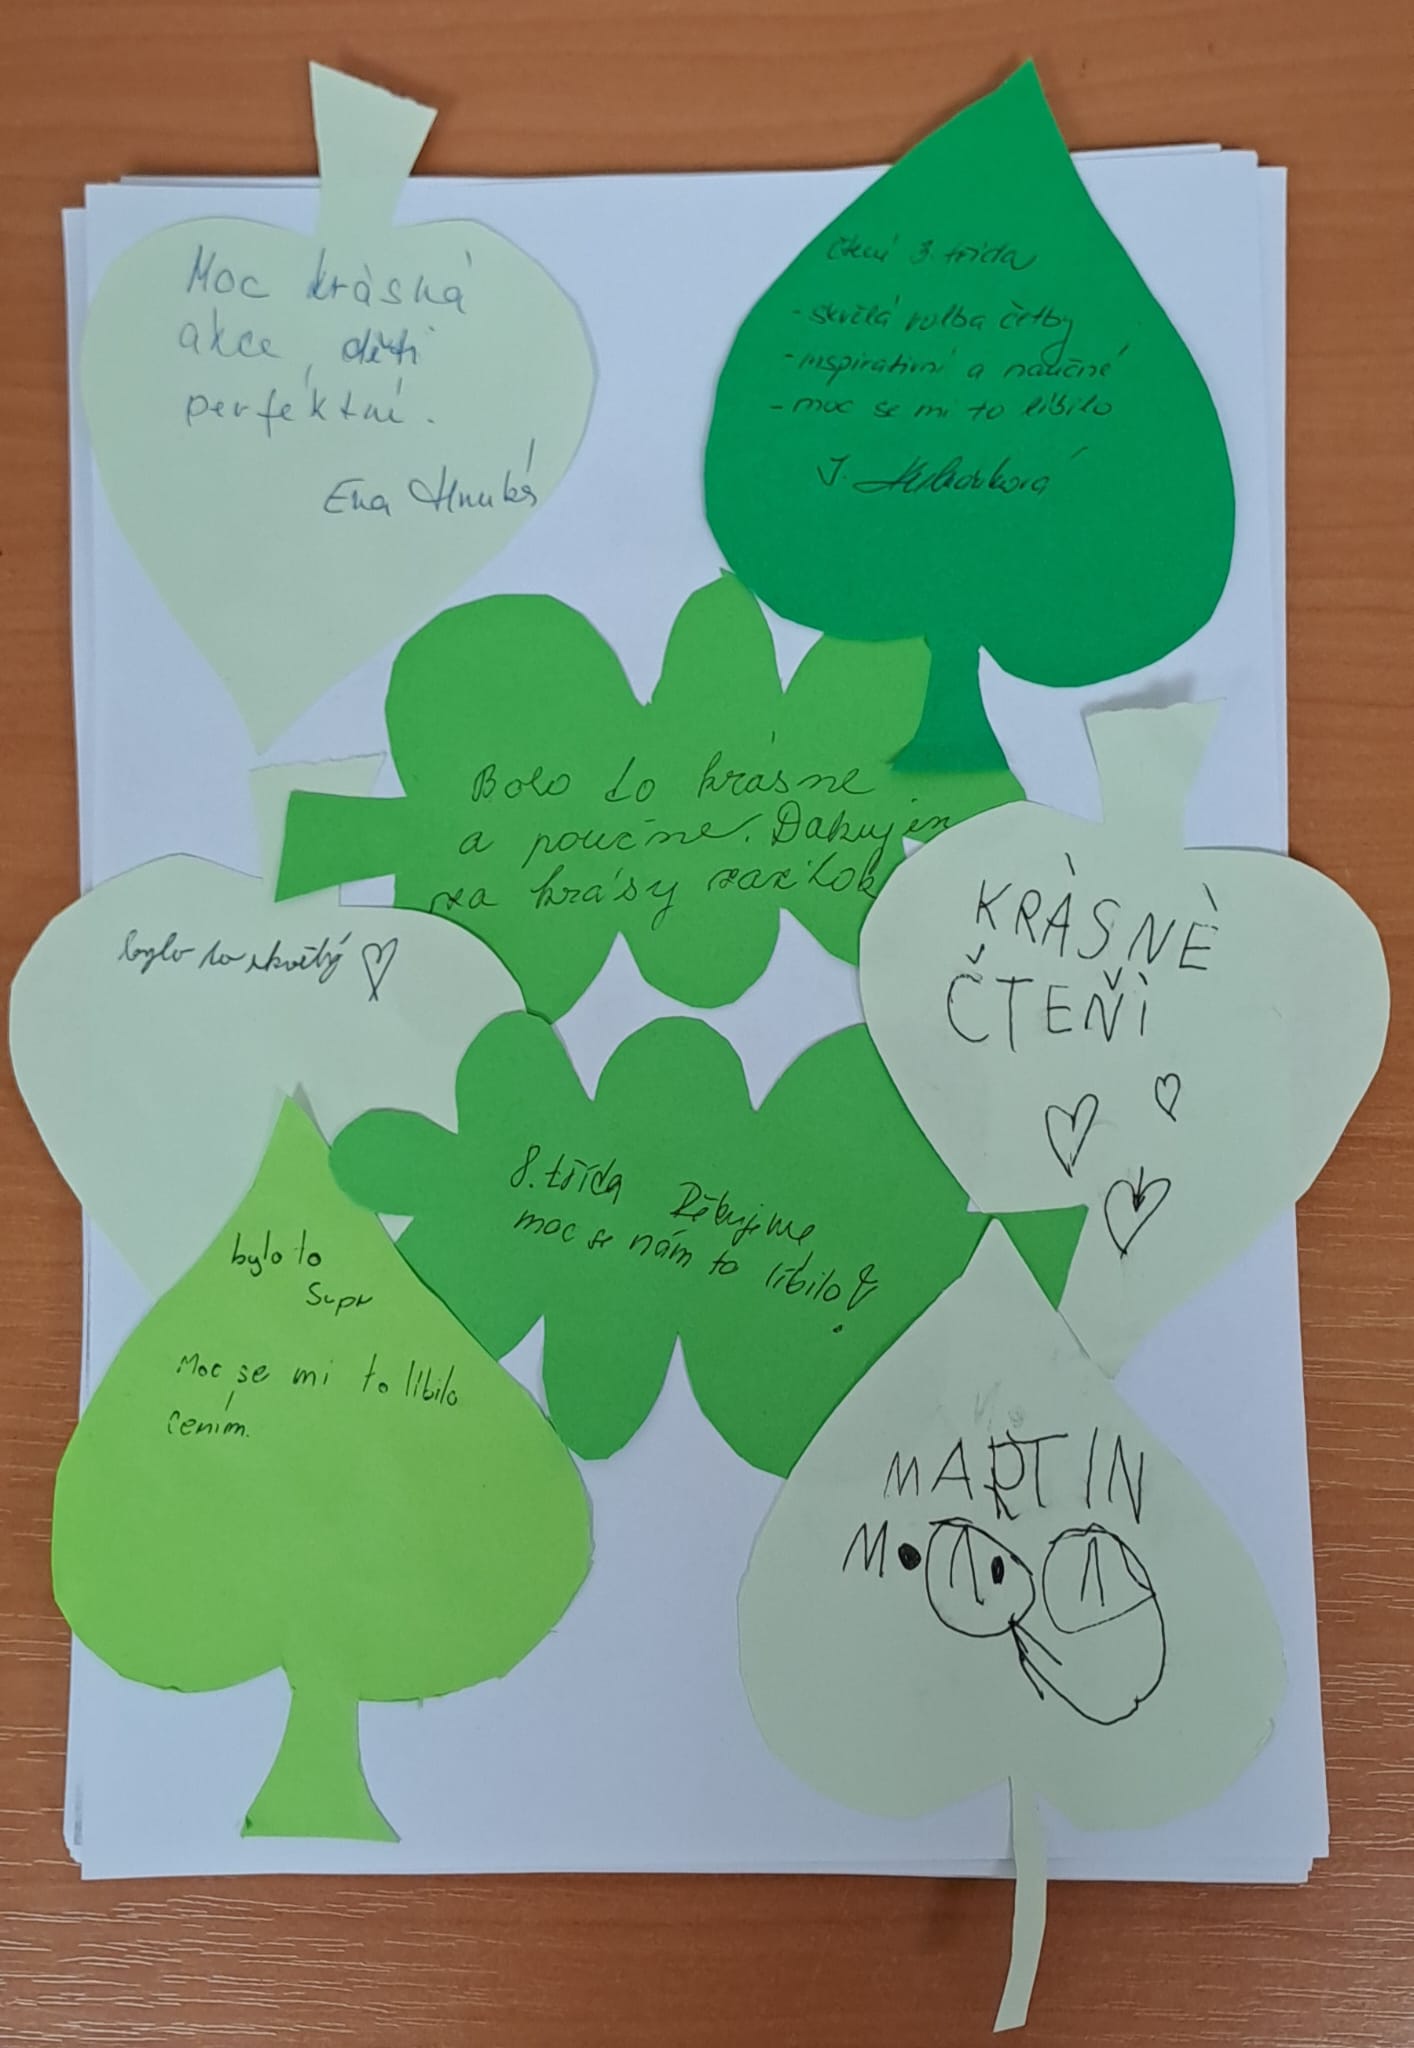 Moc krásná
akce, děti
perfektní.
Eva
čtení 3. třída
- skvělá volba četby
- inspirativní a naučné
- moc se mi to líbilo
J.
Bolo to krásne
a poučné. Ďakujem
za krásy zážitok
bylo to skvělý
KRÀSNÈ
ČTEŇÌ
8. třída Děkujeme
moc se nám to líbilo!
bylo to
Supr
Moc se mi to líbilo
cením.
MARTIN